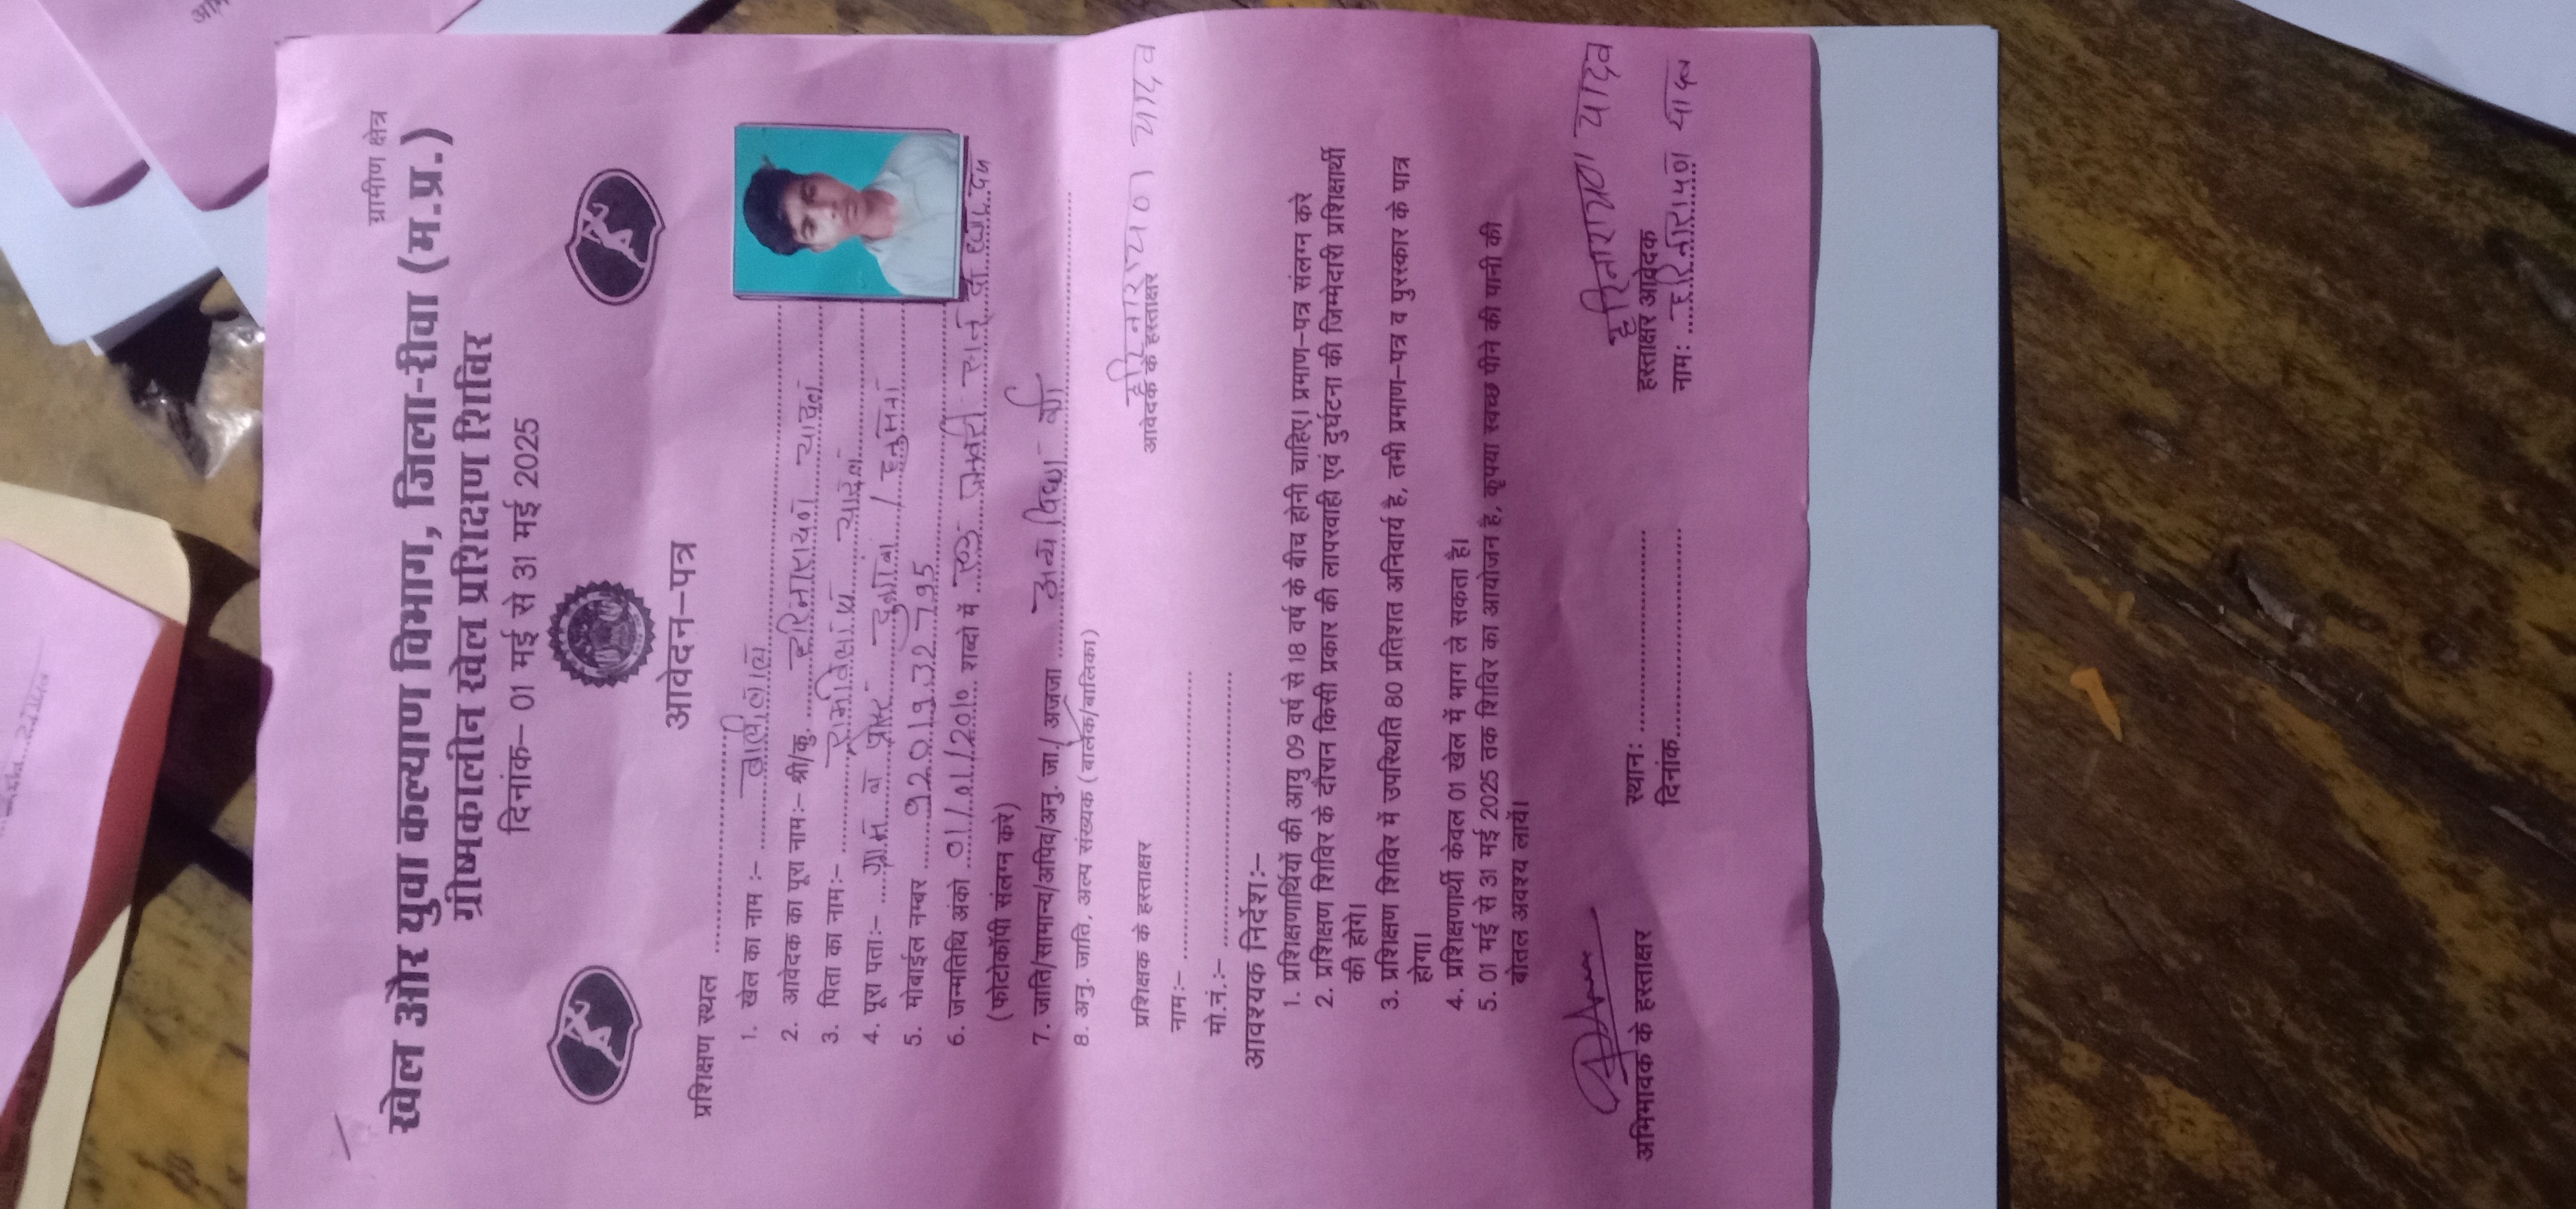 ग्रामीण क्षेत्र
खेल और युवा कल्याण विभाग, जिला-रीवा (म.प्र.)
ग्रीष्मकालीन खेल प्रशिक्षण शिविर
दिनांक– 01 मई से 31 मई 2025
आवेदन–पत्र
प्रशिक्षण स्थल
1. खेल का नाम :–
2. आवेदक का पूरा नाम:– श्री/कु. हरिनारायण यादव
3. पिता का नाम:–
4. पूरा पता:– ग्राम व पोस्ट
5. मोबाईल नम्बर 92019 32 795
6. जन्मतिथि अंको 01/01/2010 शब्दो में
(फोटोकॉपी संलग्न करे)
7. जाति/सामान्य/अपिव/अनु. जा./ अजजा
8. अनु. जाति, अल्प संख्यक (बालक/बालिका)
प्रशिक्षक के हस्ताक्षर आवेदक के हस्ताक्षर हरिनारायण यादव
नाम:–
मो.नं.:–
आवश्यक निर्देश:–
1. प्रशिक्षणार्थियों की आयु 09 वर्ष से 18 वर्ष के बीच होनी चाहिए। प्रमाण–पत्र संलग्न करे
2. प्रशिक्षण शिविर के दौरान किसी प्रकार की लापरवाही एवं दुर्घटना की जिम्मेदारी प्रशिक्षार्थी
की होगी।
3. प्रशिक्षण शिविर में उपस्थिति 80 प्रतिशत अनिवार्य है, तभी प्रमाण–पत्र व पुरस्कार के पात्र
होगा।
4. प्रशिक्षणार्थी केवल 01 खेल में भाग ले सकता है।
5. 01 मई से 31 मई 2025 तक शिविर का आयोजन है, कृपया स्वच्छ पीने की पानी की
बोतल अवश्य लायें।
हरिनारायण यादव
अभिभावक के हस्ताक्षर स्थान: हस्ताक्षर आवेदक
दिनांक नाम: हरिनारायण यादव